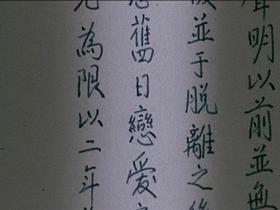 聲明以前並無
並于脫離之後
舊日戀愛
為限以二年